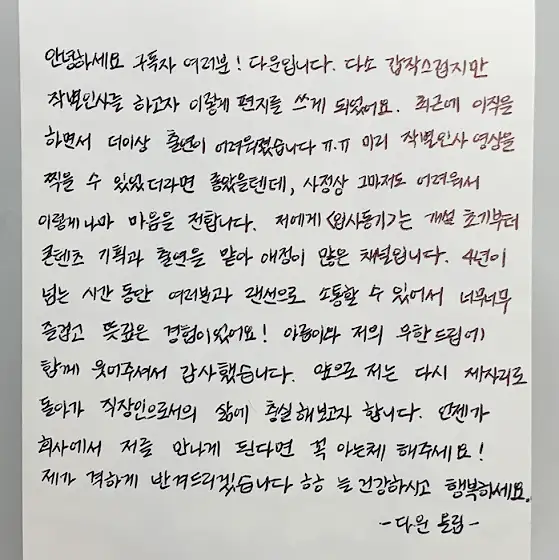 안녕하세요 구독자 여러분! 다운입니다. 다소 갑작스럽지만
작별인사를 하고자 이렇게 편지를 쓰게 되었어요. 최근에 이직을
하면서 더이상 출연이 어려워졌습니다 ㅠ.ㅠ 미리 작별인사 영상을
찍을 수 있었더라면 좋았을텐데, 사정상 그마저도 어려워서
이렇게나마 마음을 전합니다. 저에게 <입사동기>는 개설 초기부터
콘텐츠 기획과 출연을 맡아 애정이 많은 채널입니다. 4년이
넘는 시간 동안 여러분과 랜선으로 소통할 수 있어서 너무너무
즐겁고 뜻깊은 경험이었어요! 아름이와 저의 무한드립에
함께 웃어주셔서 감사했습니다. 앞으로 저는 다시 제자리로
돌아가 직장인으로서의 삶에 충실해보고자 합니다. 언젠가
회사에서 저를 만나게 된다면 꼭 아는체 해주세요!
제가 격하게 반겨드리겠습니다 ㅎㅎ 늘 건강하시고 행복하세요.
-다운 올림-